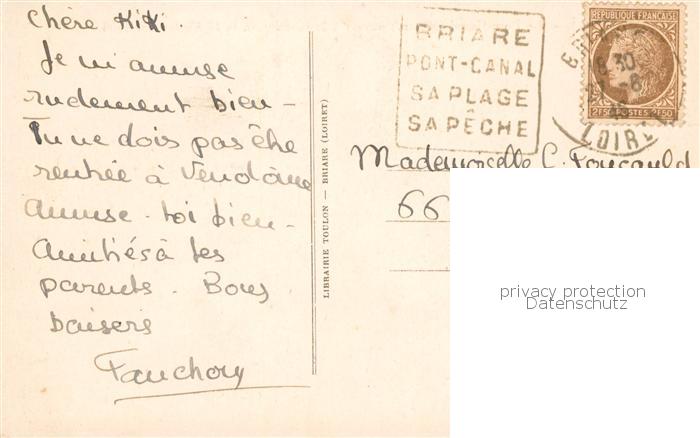 Chère Kiki.
Je m'amuse
rudement bien -
Tu ne dois pas être
rentrée à Vendôme
Amuse-toi bien -
Amitiés à tes
parents. Bons
baisers
Fanchon
LIBRAIRIE TOULON — BRIARE (LOIRET)
BRIARE
PONT-CANAL
SA PLAGE
SA PÊCHE
RÉPUBLIQUE FRANÇAISE
2F50 POSTES 2F50
LOIRET
Mademoiselle C. Foucauld
66
privacy protection
Datenschutz